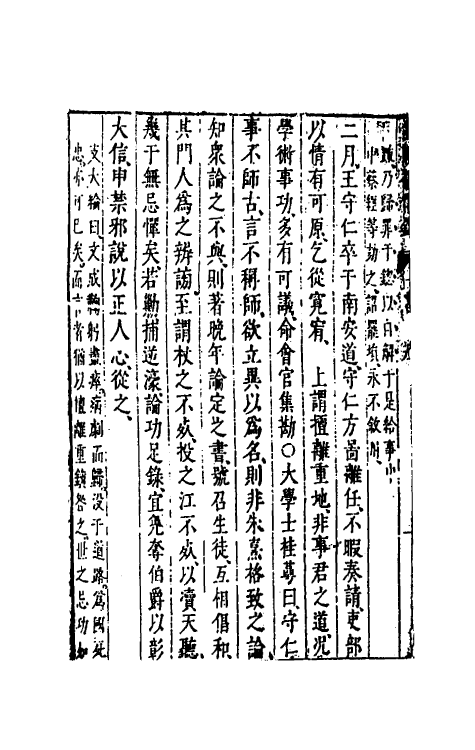 乃歸罪于總以自解于是給事中
蔡經等劾之詔罷永不敘用
二月王守仁卒于南安道守仁方啚離任不暇奏請吏部
以情有可原乞從寬宥　上謂擅離重地非事君之道況
學術事功多有可議命會官集勘〇大學士桂萼曰守仁
事不師古言不稱師欲立異以爲名則非朱熹格致之論
知衆論之不與則著晚年論定之書號召生徒互相倡和
其門人爲之辨謗至謂杖之不死投之江不死以瀆天聽
幾于無忌憚矣若勦捕逆濠論功足錄宜免奪伯爵以彰
大信申禁邪說以正人心從之
支大綸曰文成鞠躬盡瘁病劇而歸没于道路爲國死
忠亦可已矣而言者猶以擅離重鎮咎之世之忌功